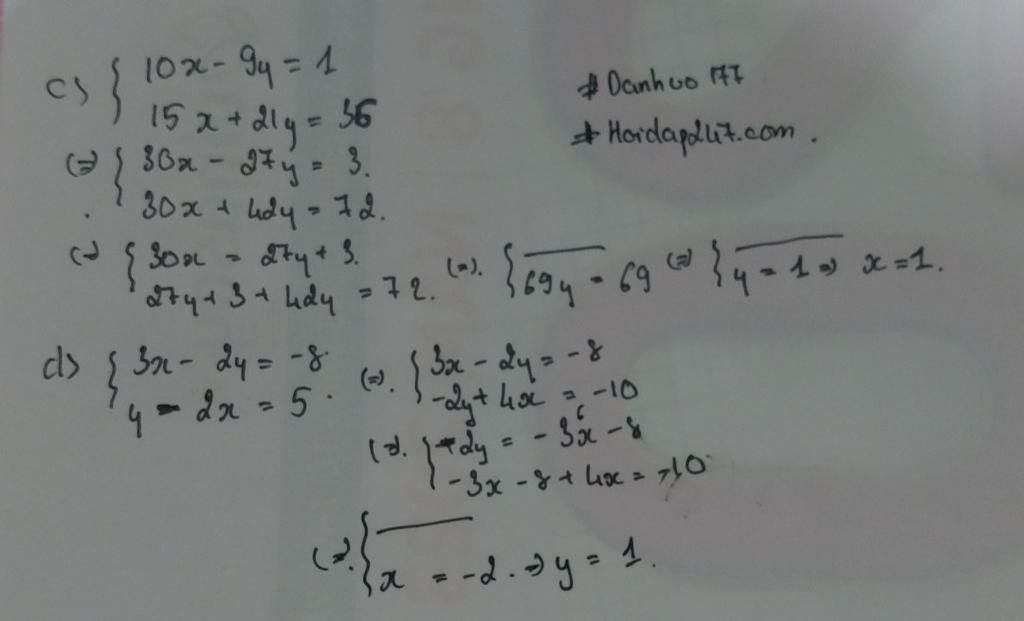 c) { 10x - 9y = 1
15x + 21y = 36
# Danhvo 177
# Hoidap247.com .
(=) { 30x - 27y = 3.
30x + 42y = 72.
(=) { 30x = 27y + 3.
27y + 3 + 42y = 72. (=). { 69y = 69 (=) { y = 1 => x = 1.
d) { 3x - 2y = -8
y - 2x = 5 . (=). { 3x - 2y = -8
-2y + 4x = -10
(=). { -2y = -3x - 8
-3x - 8 + 4x = -10
(=). { x = -2 . => y = 1.